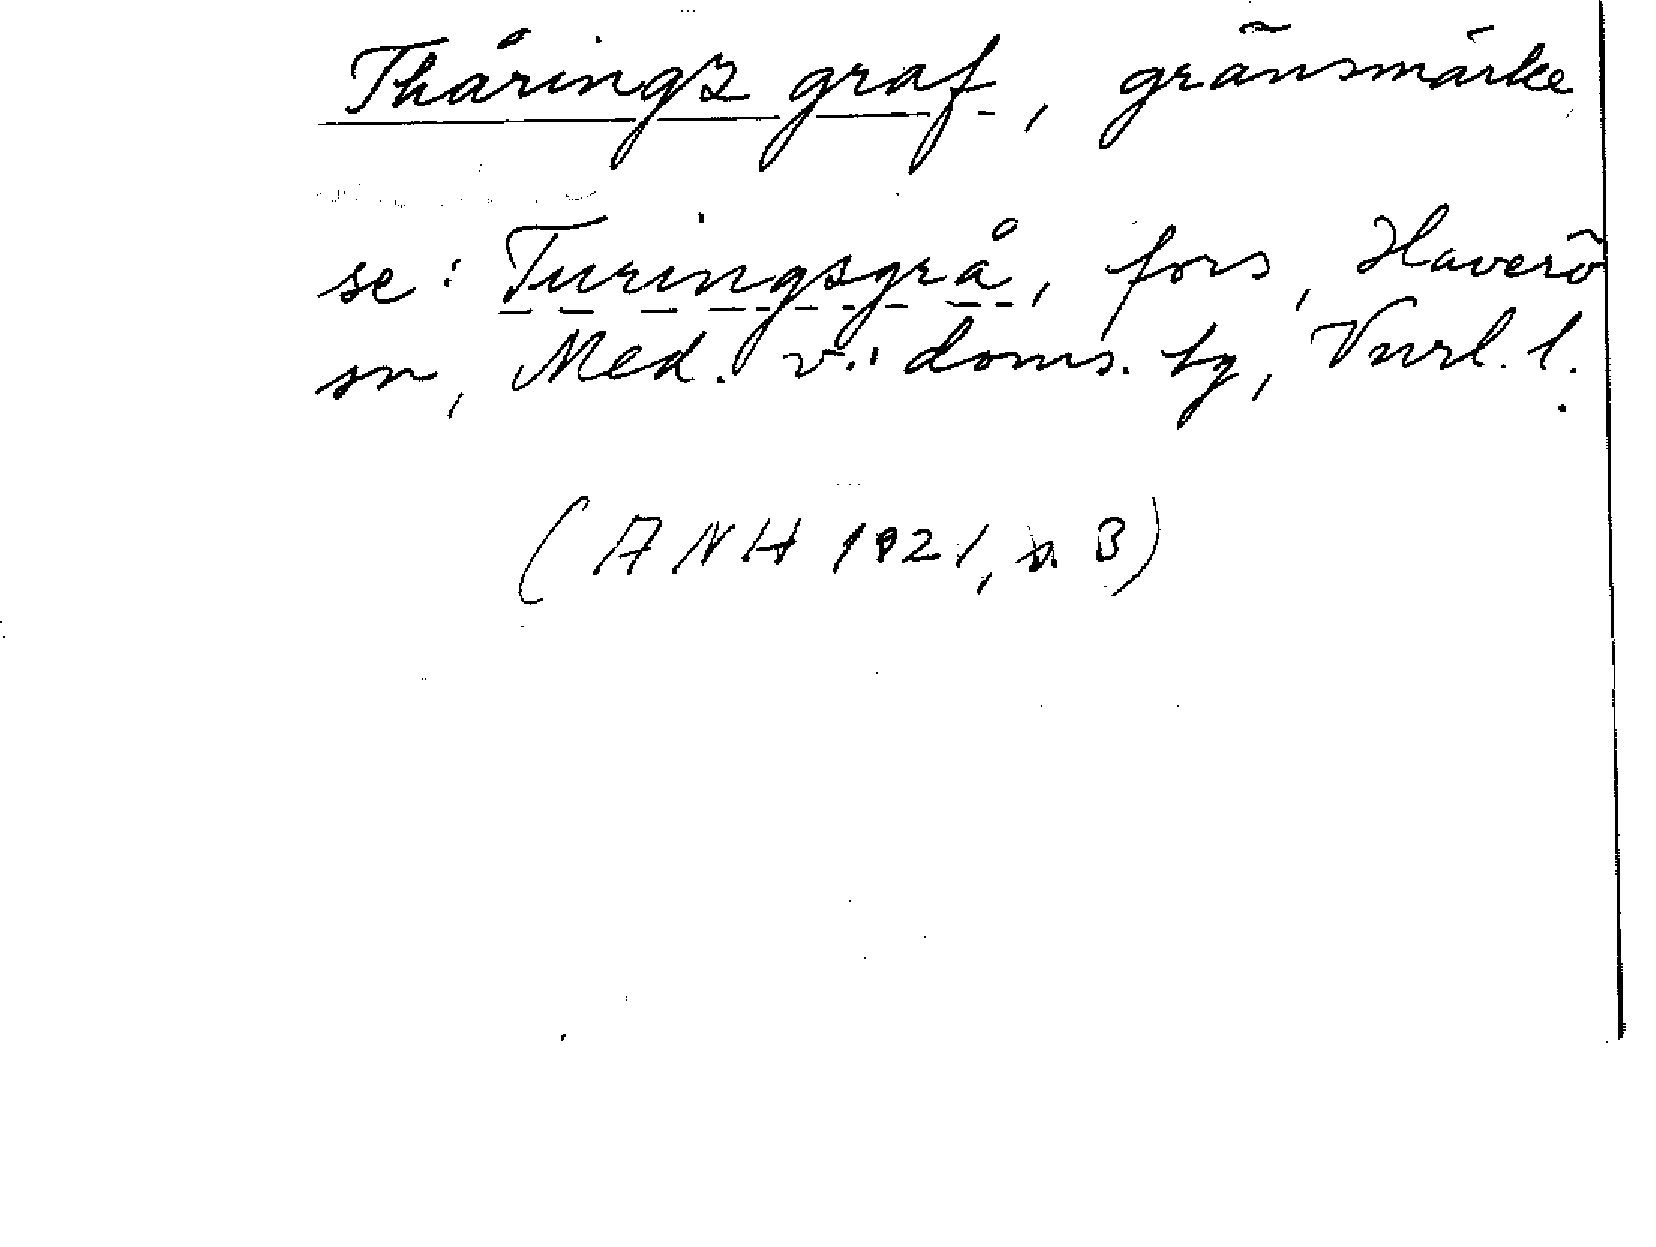 Thåringz graf, gränsmärke
se: Turingsgrå, fors, Haverö
sn, Med. v:i doms. tg, Vnrl. l.
(ANH 1921, s. 3)